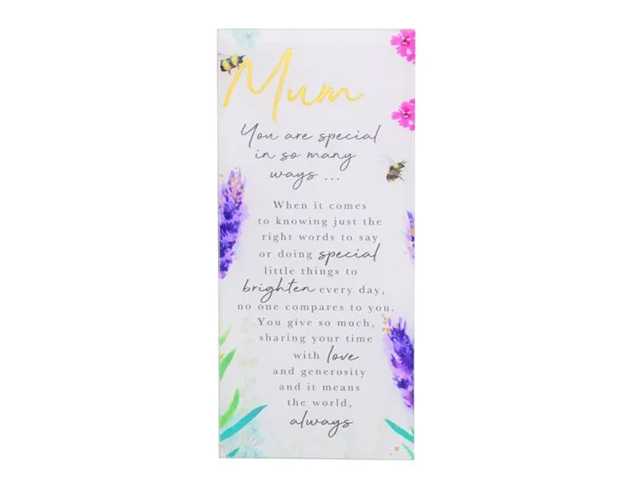 Mum
You are special
in so many
ways ...
When it comes
to knowing just the
right words to say
or doing special
little things to
brighten every day,
no one compares to you.
You give so much,
sharing your time
with love
and generosity
and it means
the world,
always